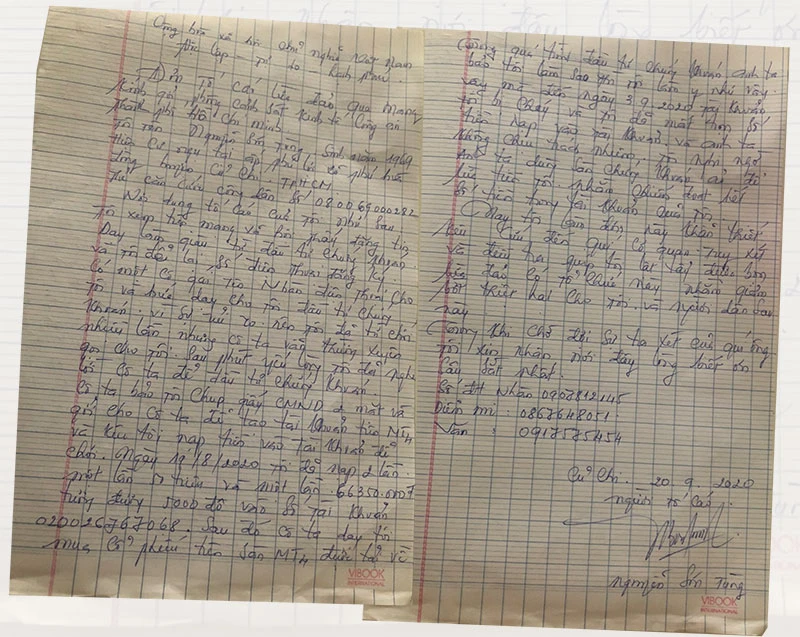 Cộng hòa xã hội chủ nghĩa Việt Nam
Độc lập - Tự do - hạnh phúc
Đơn tố cáo lừa đảo qua mạng
kính gởi phòng cảnh sát kinh tế công an
thành phố Hồ Chí Minh
Tôi tên Nguyễn Sơn Tùng Sinh năm 1969
Hiện cư ngụ tại ấp phú lợi xã phú hòa
Đông huyện Củ Chi TPHCM
Thẻ căn cước công dân số 080069000282
Nội dung tố cáo của tôi như sau
Tôi xem trên mạng và thấy đăng tin
Dạy làm giàu từ đầu tư chứng khoán
và tôi để lại số điện thoại đăng ký.
Có một cô gái tên Nhân điện thoại cho
tôi và dạy cho tôi đầu tư chứng
khoán. vì sợ rủi ro nên tôi đã từ chối
nhiều lần nhưng cô ta vẫn thường xuyên
gọi cho tôi. Sau phút yếu lòng tôi đã nghe
lời cô ta để đầu tư chứng khoán.
Cô ta bảo tôi chụp giấy CMND 2 mặt và
gởi cho cô ta để tạo tài khoản trên MT4
và kêu tôi nạp tiền vào tài khoản để
chơi. ngày 19/8/2020 tôi đã nạp 2 lần.
một lần 51 triệu và một lần 66350.000
tương đương 5000 đô vào số tài khoản
020026767068. Sau đó cô ta dạy tôi
mua cổ phiếu trên sàn MT4
Trong quá trình đầu tư chứng khoán anh ta
bảo tôi làm sao thì tôi làm y như vậy.
vậy mà đến ngày 3.9.2020 tài khoản
tôi bị cháy và tôi đã mất hết số
tiền nạp vào tài khoản và anh ta
không chịu trách nhiệm, tôi nghi ngờ
anh ta dùng sàn chứng khoán ảo để
lừa tiền tôi nhằm chiếm đoạt hết
số tiền trong tài khoản của tôi.
Nay tôi làm đơn này khẩn thiết
kêu cứu đến quý cơ quan truy xét
và điều tra giúp tôi lại
lừa đảo có tổ chức này nhằm giảm
bớt thiệt hại cho tôi và người dân sau
này
Trong khi chờ đợi sự tra xét của quý ông
tôi xin nhận nơi đây lòng biết ơn
sâu sắt nhất.
Số ĐT Nhân 0908812145
Diễm mi : 0867648051
Văn : 0917575454
Củ Chi. 20.9.2020
người tố cáo
Nguyễn Sơn Tùng
VIBOOK
INTERNATIONAL
VIBOOK
INTERNATIONAL